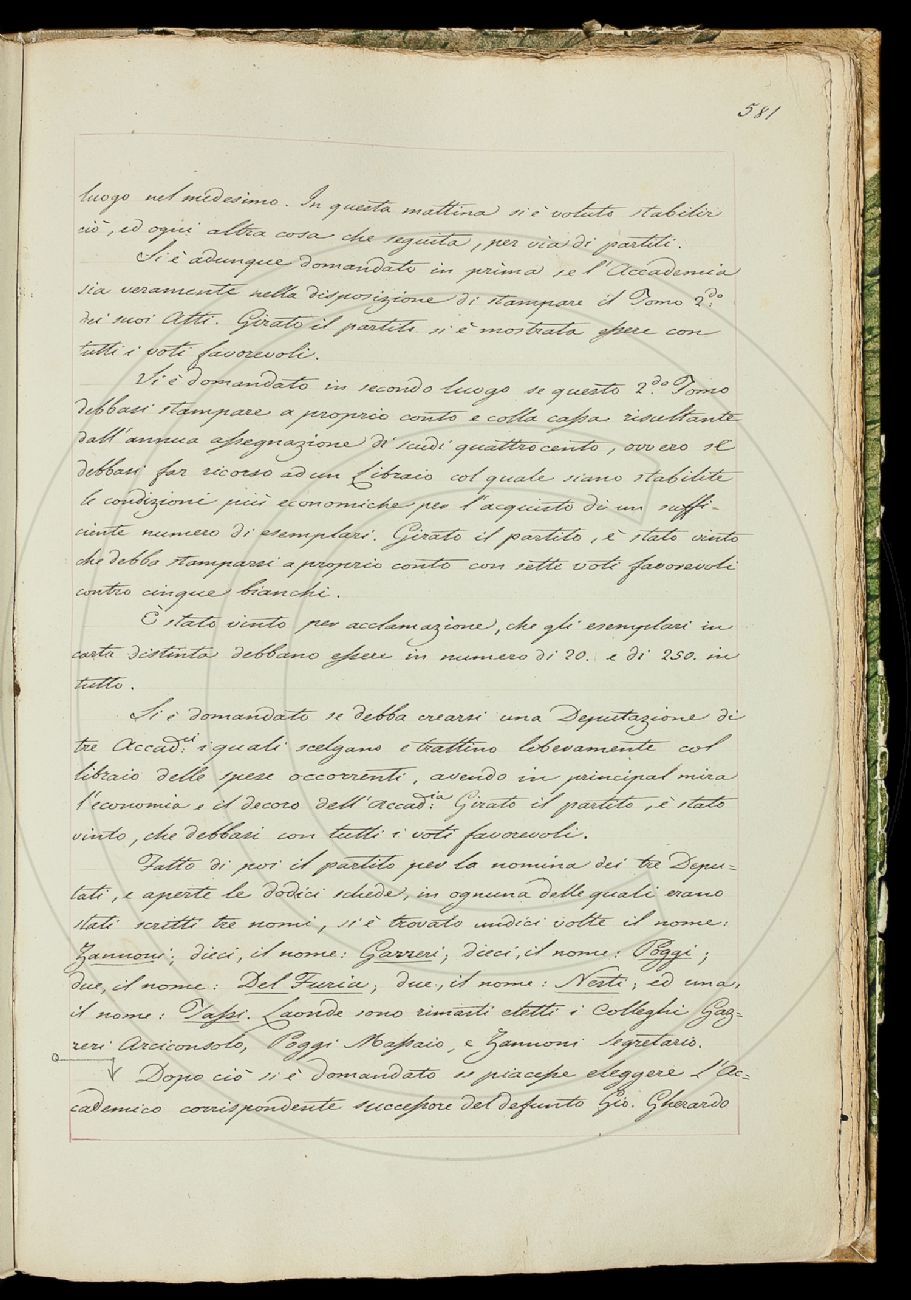 581
luogo nel medesimo. In questa mattina si è voluto stabilir
ciò, ed ogni altra cosa che seguita, per via di partiti.
Si è adunque domandato in prima se l'Accademia
sia veramente nella disposizione di stampare il Tomo 2.do
dei suoi Atti. Girato il partito si è mostrata essere con
tutti i voti favorevoli.
Si è domandato in secondo luogo se questo 2.do Tomo
debbasi stampare a proprio conto e colla cassa risultante
dall'annua assegnazione di scudi quattrocento, ovvero se
debbasi far ricorso ad un Libraio col quale siano stabilite
le condizioni più economiche per l'acquisto di un suffi-
ciente numero di esemplari. Girato il partito, è stato vinto
che debba stamparsi a proprio conto con sette voti favorevoli
contro cinque bianchi.
È stato vinto per acclamazione, che gli esemplari in
carta distinta debbano essere in numero di 20. e di 250. in
tutto.
Si è domandato se debba crearsi una Deputazione di
tre Accad:ci i quali scelgano e trattino liberamente col
libraio delle spese occorrenti, avendo in principal mira
l'economia e il decoro dell'Accad:ia Girato il partito, è stato
vinto, che debbasi con tutti i voti favorevoli.
Fatto di poi il partito per la nomina dei tre Depu=
tati, e aperte le dodici schede, in ognuna delle quali erano
stati scritti tre nomi, si è trovato undici volte il nome:
Zannoni; dieci, il nome: Gazzeri; dieci, il nome: Poggi;
due, il nome: Del Furia; due, il nome: Nesti; ed una,
il nome: Tassi. Laonde sono rimasti eletti i Colleghi Gaz=
zeri Arciconsolo, Poggi Massaio, e Zannoni Segretario.
Dopo ciò si è domandato se piacesse eleggere l'Ac=
cademico corrispondente successore del defunto Gio. Gherardo